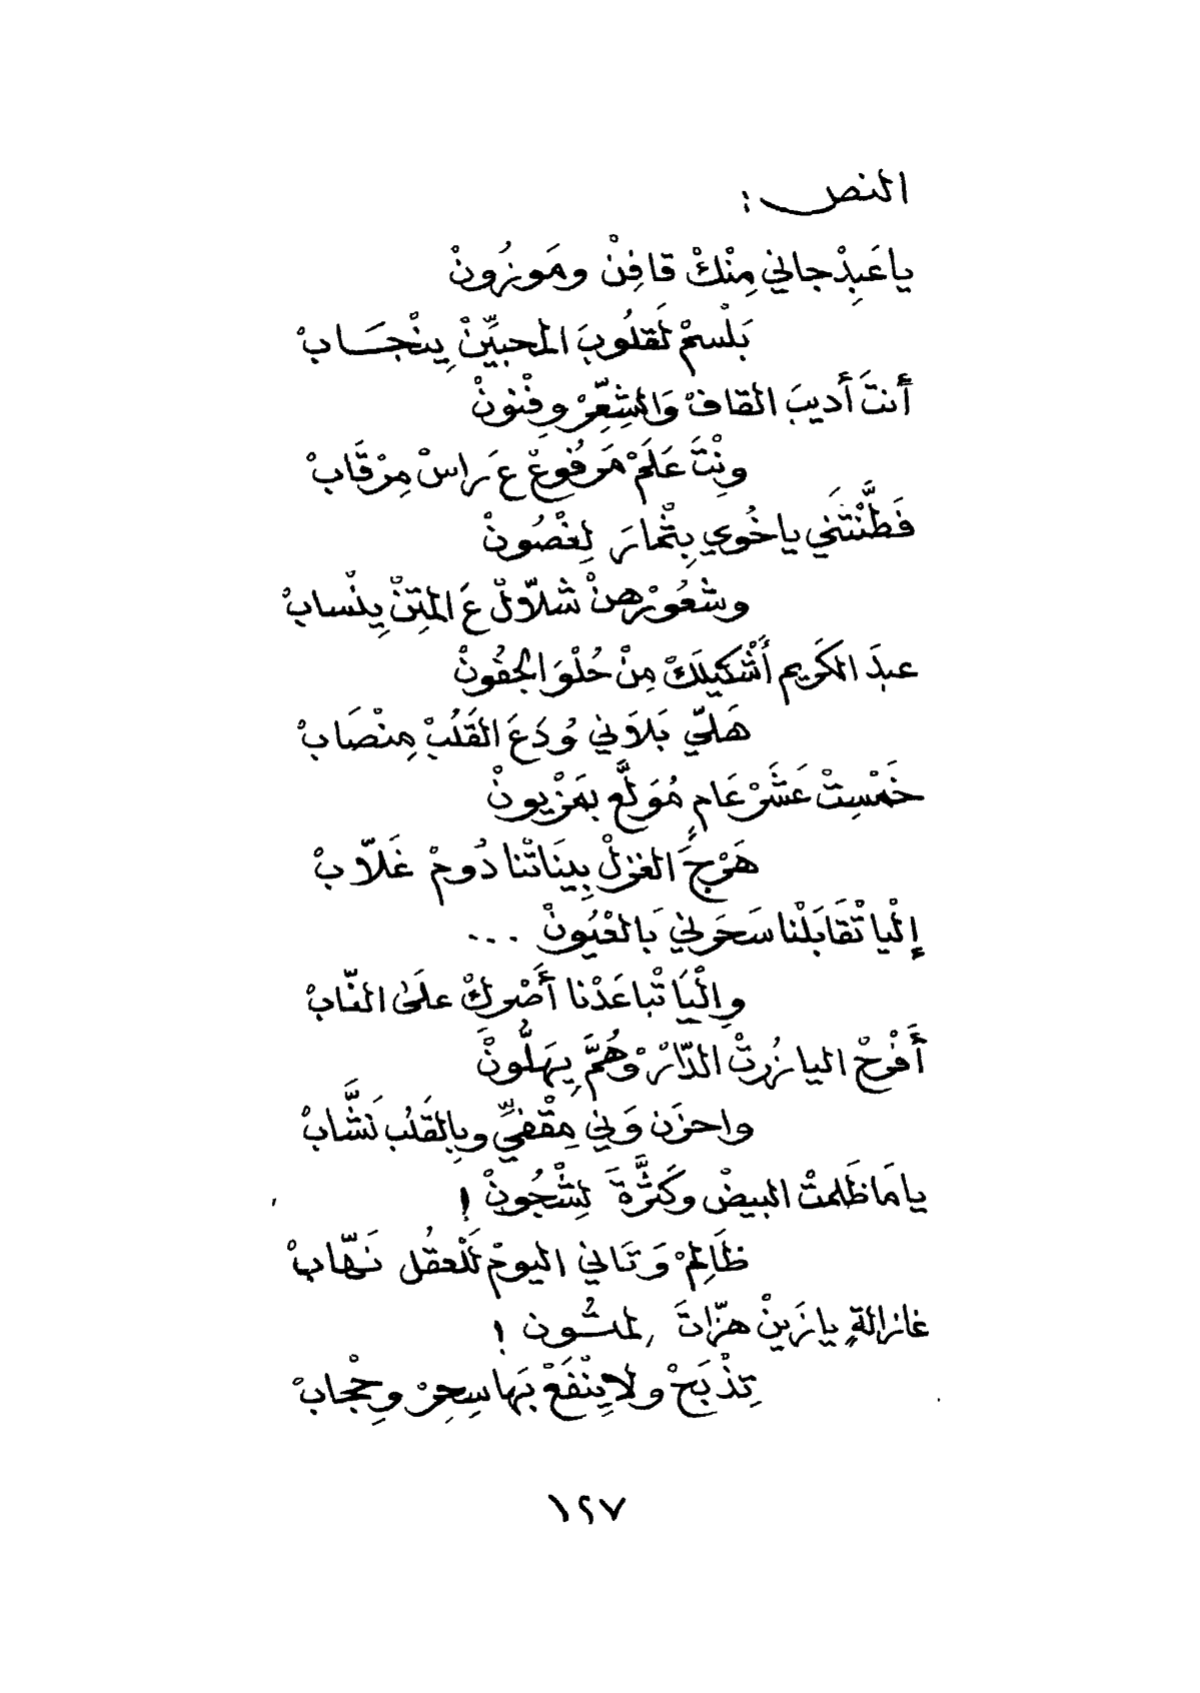 النص :
يا عَبِدْ جاني مِنْكْ قافِنْ ومَوزُونْ
بَلْسمْ لَقلُوبَ المحبيِّنْ يِنْجَسَابْ
أَنتَ أَديبَ القافْ وَالشِعِّرْ وِفْنونْ
ونِْتَ عَلَمْ مَرفُوعْ عَ راسْ مِرْقَابْ
فَطَّنْتَني ياخُوي بِثْمارَ لِغْصُونْ
وشعُوْرْهنْ شلاّلْ عَ المِتنْ يِنْسابْ
عبدَ الكَريم أَشْكيلَكْ مِنْ حُلْوَ الجفُونْ
هَليّ بَلاَني وُدَعَ القَلُبْ مِنْصَابْ
خَمْسِتْ عَشَرْ عَامٍ مُوَلَّع بمَزْيونْ
هَرْجَ الغزلْ بِينَاتْنا دُومْ غَلاّبْ
إلْيا تْقَابَلْنا سَحَرني بَالعْيُونْ ...
والْيَا تْباعَدْنا أَصْركْ علَى النّابْ
أَفرحْ اليا زُرتْ الدّارْ وْهُمَّ يِهَلُّونْ
واحزَن وَني مِقْفيِّ وبِالقَلُب نَشَّابْ
يا مَا ظَلمتْ البيضْ وكَثرَّةَ لِشْجُونْ !
ظَالِمْ وَتَاني اليومْ لَلْعقُل نَهّابْ
غازالةٍ يا زَينْ هزّاتَ لمتُون !
تِذْبَحْ ولا يِنْفَعْ بَها سِحِرْ وِحْجابْ
١٢٧